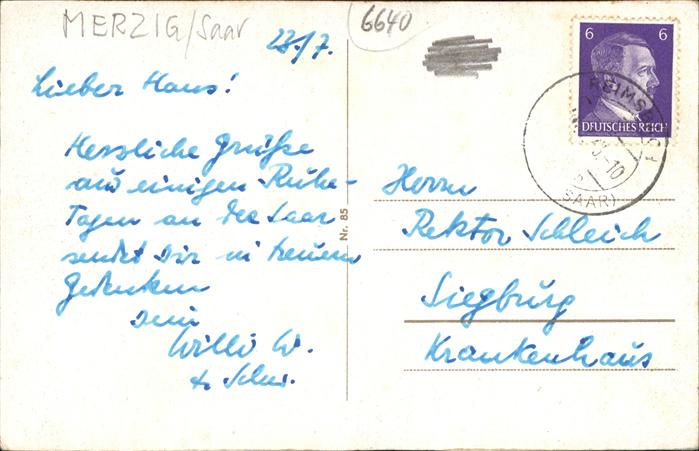 MERZIG/Saar
6640
28./7.
Lieber Hans!
Herzliche Grüße
aus einigen Ruhe-
Tagen an der Saar
sendet Dir in treuem
Gedenken
Dein
Willi W.
Nr. 85
6 6
DEUTSCHES REICH
(SAAR)
Herrn
Rektor Schleich
Siegburg
Krankenhaus